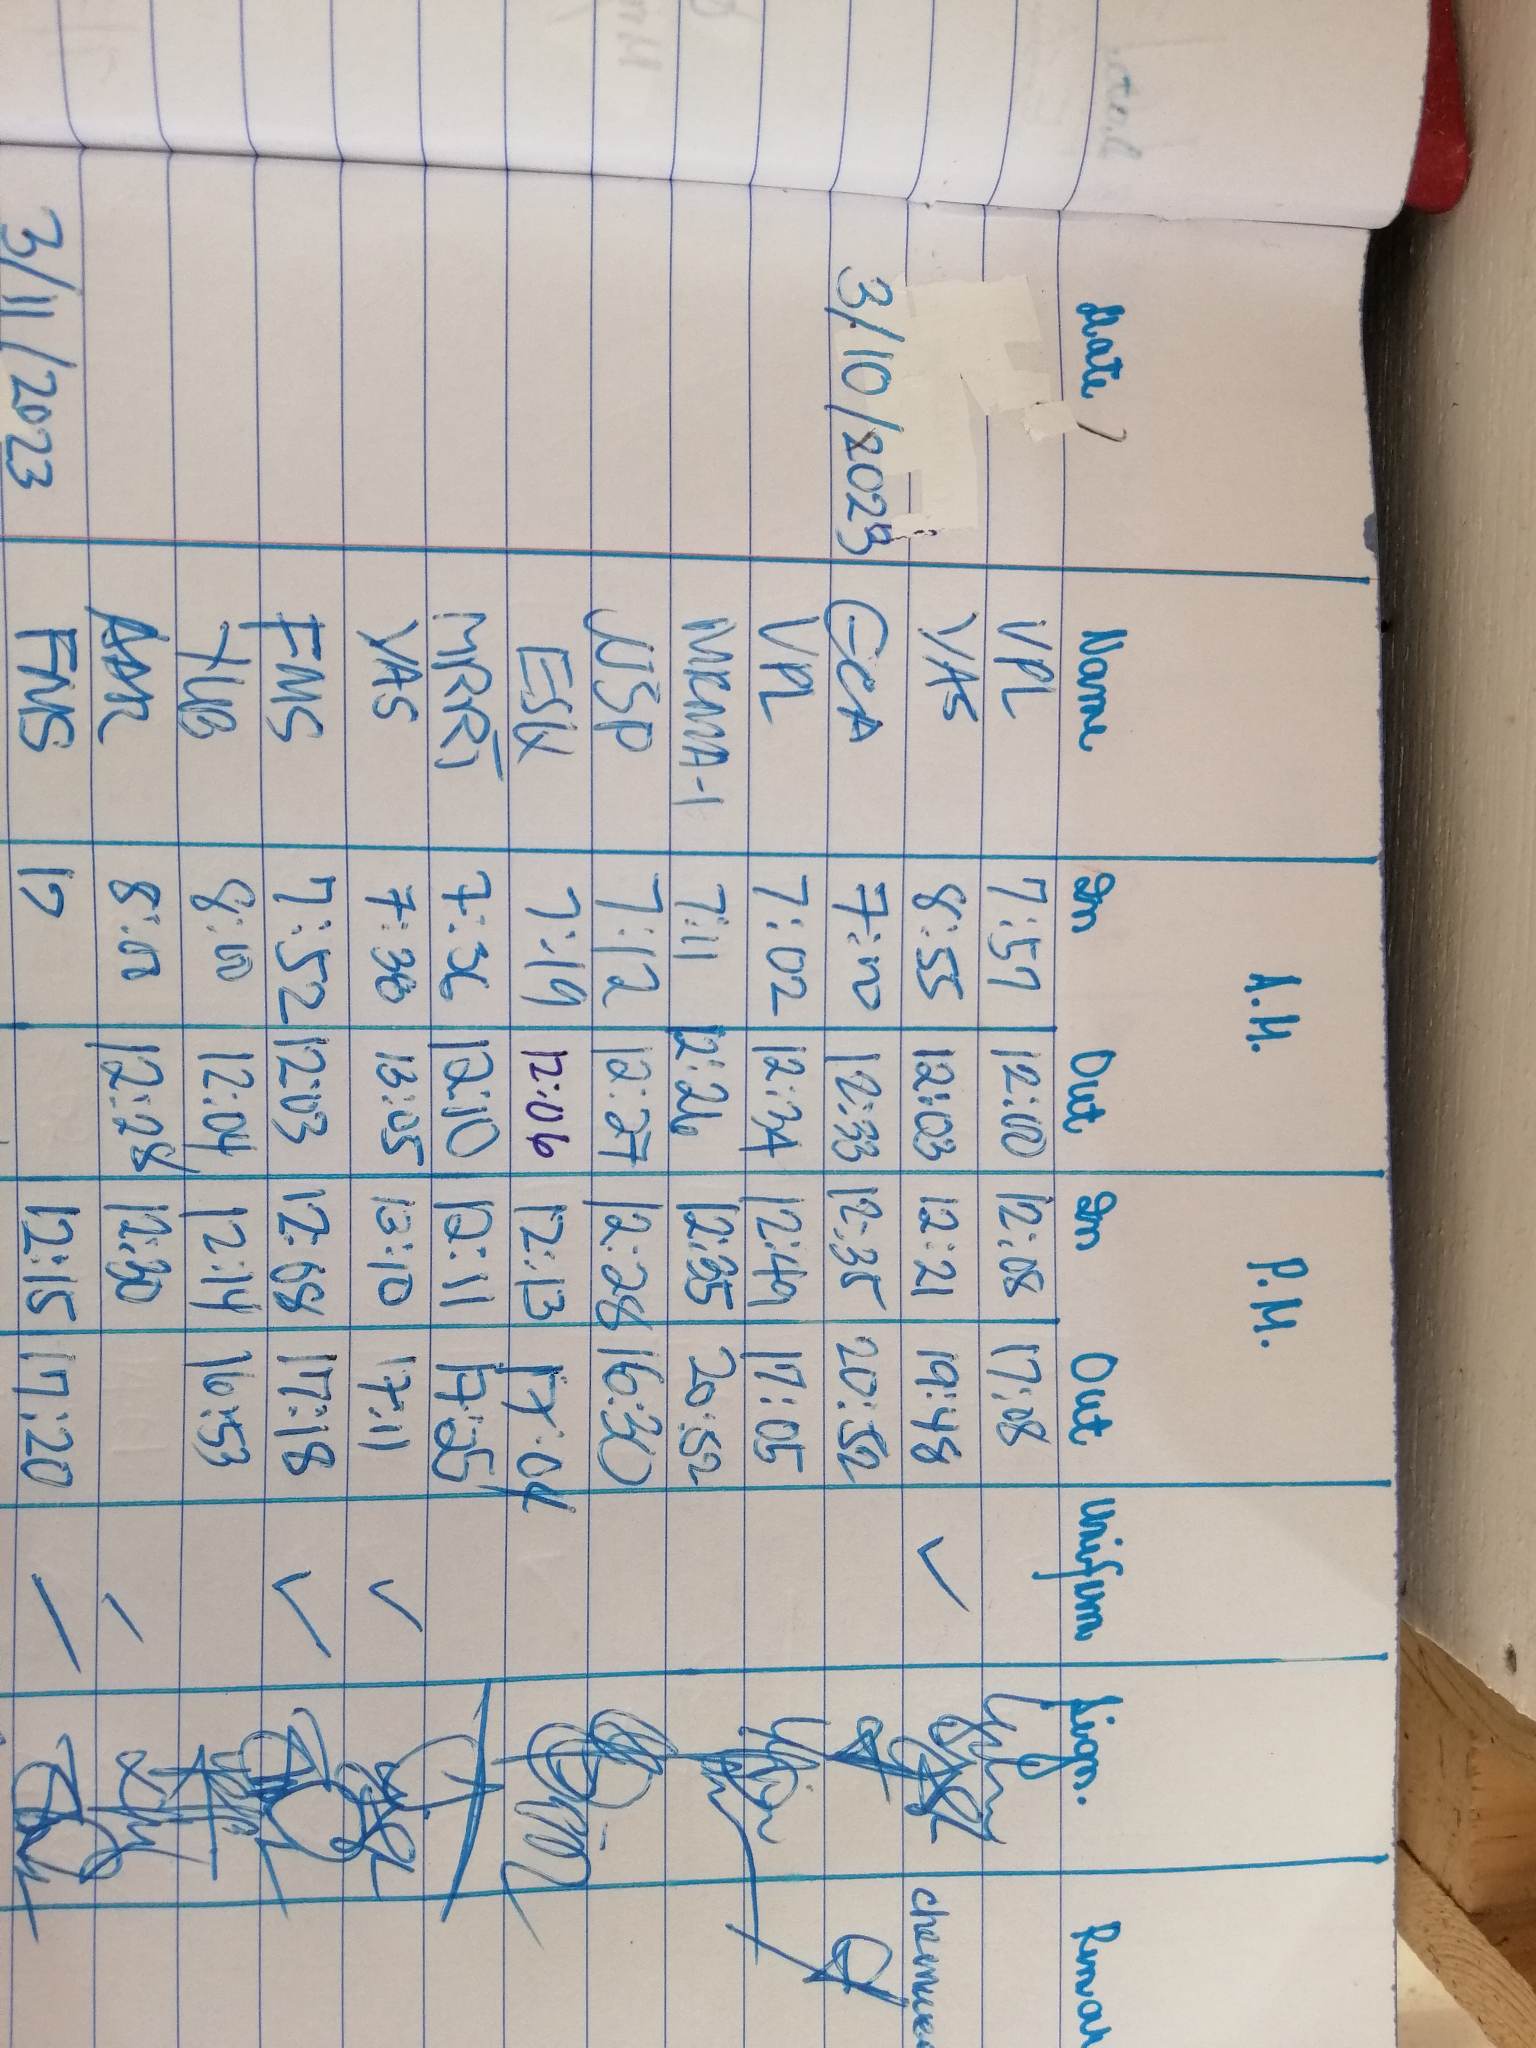 A.M. P.M.
Date Name In Out In Out Unifum Sign. Remar
VPL 7:57 12:00 12:08 17:08
VAS 8:55 12:03 12:21 19:48
3/10/2023 CCA 7:00 12:33 12:35 20:52
VPL 7:02 12:34 12:49 17:05
7:11 12:26 12:35 20:52
7:12 12:27 12:28 16:30
7:19 12:06 12:13 17:04
7:36 12:10 12:11 17:25
VAS 7:38 13:05 13:10 17:11
FMS 7:52 12:03 12:08 17:18
8:00 12:04 12:14 16:53
8:00 12:28 12:30
3/11/2023 FMS 12:15 17:20